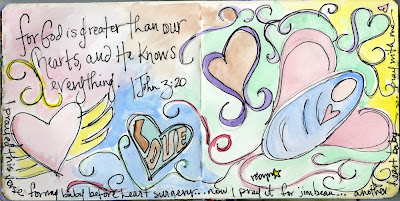 for God is greater than our
hearts, and He knows
everything. 1 John 3:20
LOVE
prayed this ver
se for my baby before heart surgery... now I pray it for jimbeau... another
heart baby pray with me